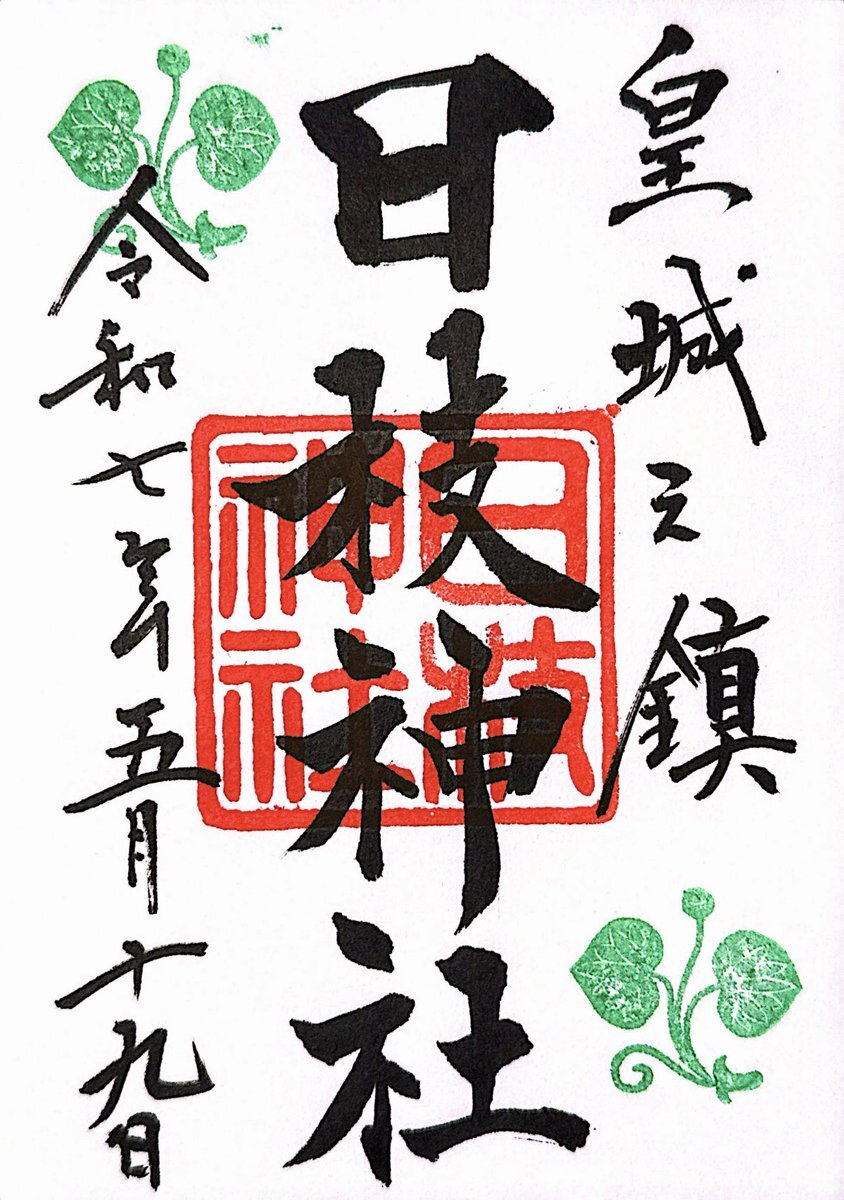 皇城之鎮
日枝神社
日枝神社
令和七年五月十九日